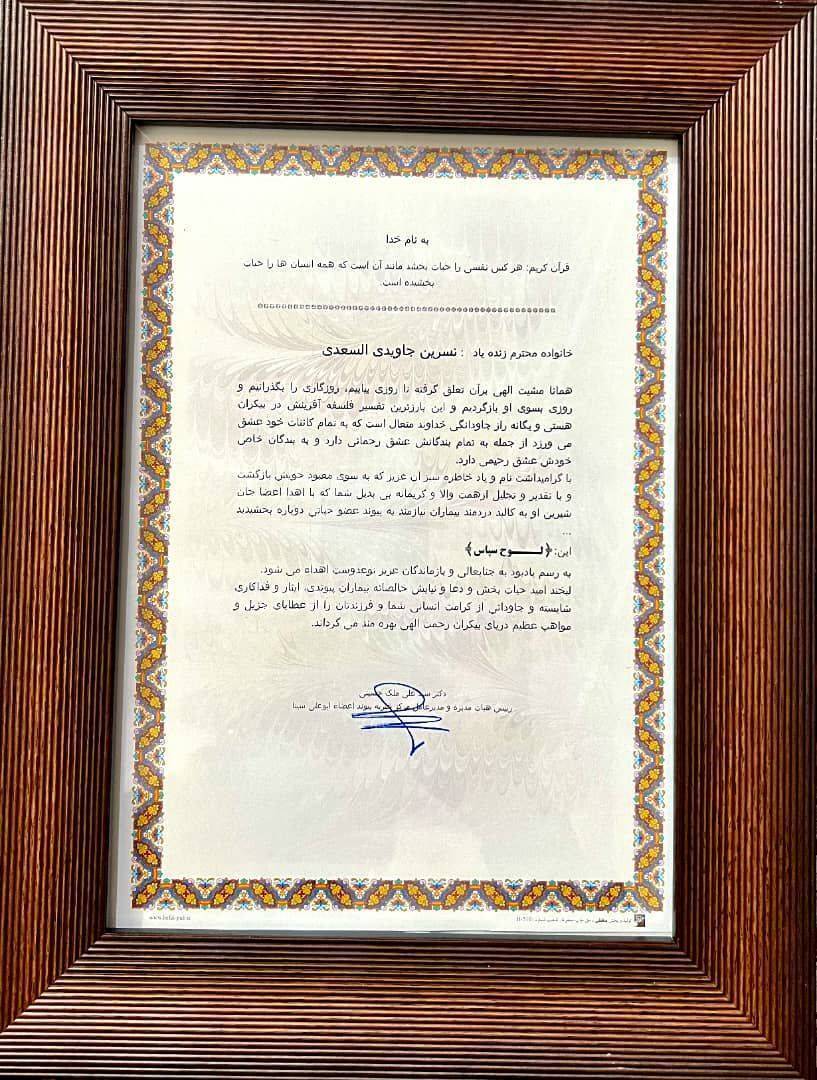 به نام خدا
قرآن کریم: هر کس نفسی را حیات بخشد مانند آن است که همه انسان ها را حیات
بخشیده است.
خانواده محترم زنده یاد : نسرین جاویدی السعدی
همانا مشیت الهی برآن تعلق گرفته تا روزی بیاییم، روزگاری را بگذرانیم و
روزی بسوی او بازگردیم و این بارزترین تفسیر فلسفه آفرینش در بیکران
هستی و یگانه راز جاودانگی خداوند متعال است که به تمام کائنات خود عشق
می ورزد از جمله به تمام بندگانش عشق رحمانی دارد و به بندگان خاص
خودش عشق رحیمی دارد.
با گرامیداشت نام و یاد خاطره سبز آن عزیز که به سوی معبود خویش بازگشت
و با تقدیر و تجلیل ازهمت والا و کریمانه بی بدیل شما که با اهدا اعضا جان
شیرین او به کالبد دردمند بیماران نیازمند به پیوند عضو حیاتی دوباره بخشیدید
...
این: ﴿لـــــوح سپاس﴾
به رسم یادبود به جنابعالی و بازماندگان عزیز نوعدوست اهداء می شود.
لبخند امید حیات بخش و دعا و نیایش خالصانه بیماران پیوندی، ایثار و فداکاری
شایسته و جاودانی از کرامت انسانی شما و فرزندتان را از عطایای جزیل و
مواهب عظیم دریای بیکران رحمت الهی بهره مند می گرداند.
دکتر سید علی ملک حسینی
رییس هیات مدیره و مدیرعامل مرکز خیریه پیوند اعضاء ابوعلی سینا